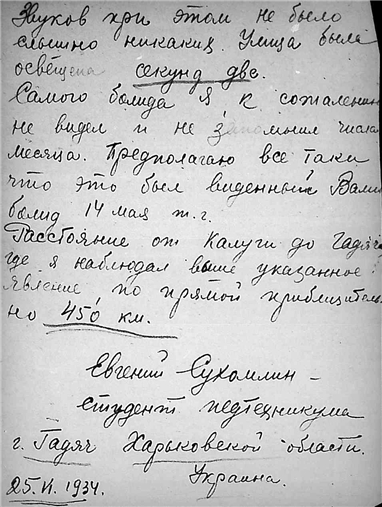 Звуков при этом не было
слышно никаких. Улица была
освещена секунд две.
Самого болида я, к сожалению
не видел и не запомнил числа
месяца. Предполагаю все таки
что это был виденный Вами
болид 14 мая т.г.
Расстояние от Калуги до Гадяча
где я наблюдал выше указанное
явление по прямой приблизитель
но 450 км.
Евгений Сухомлин –
студент педтехникума
г. Гадяч Харьковской области.
Украина.
25.VI.1934.